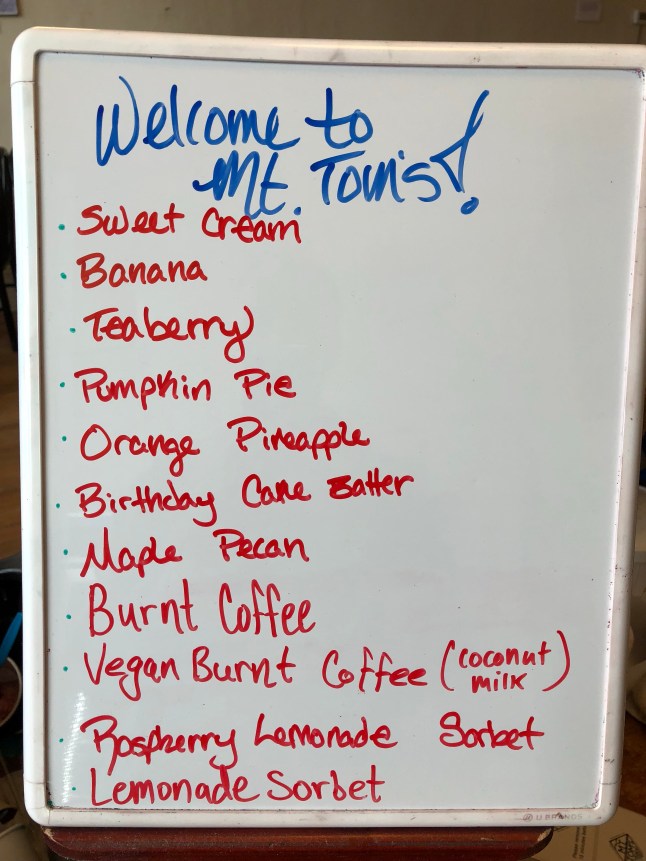 Welcome to
Mt. Tom's!
· Sweet Cream
· Banana
· Teaberry
· Pumpkin Pie
· Orange Pineapple
· Birthday Cake Batter
· Maple Pecan
· Burnt Coffee
· Vegan Burnt Coffee (coconut milk)
· Raspberry Lemonade Sorbet
· Lemonade Sorbet
U BRANDS